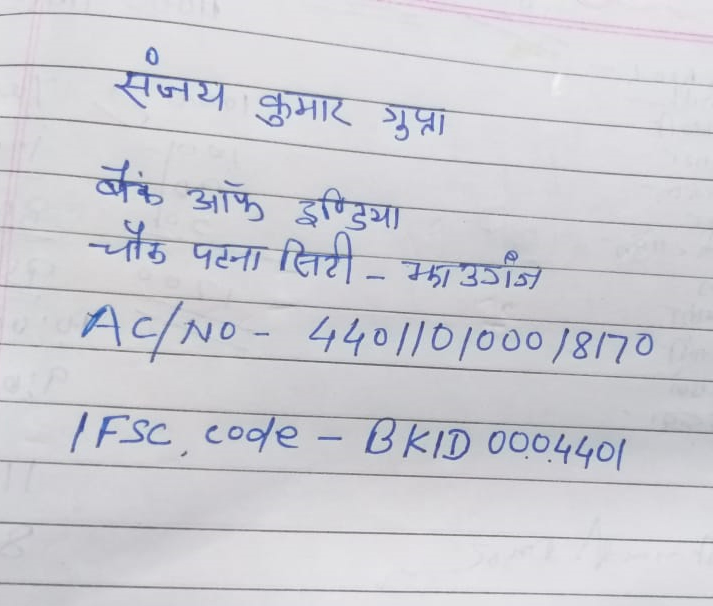 संजय कुमार गुप्ता
बैंक ऑफ इण्डिया
चौक पटना सिटी - झाउगंज
AC/NO - 440110100018170
IFSC. code - BKID 0004401